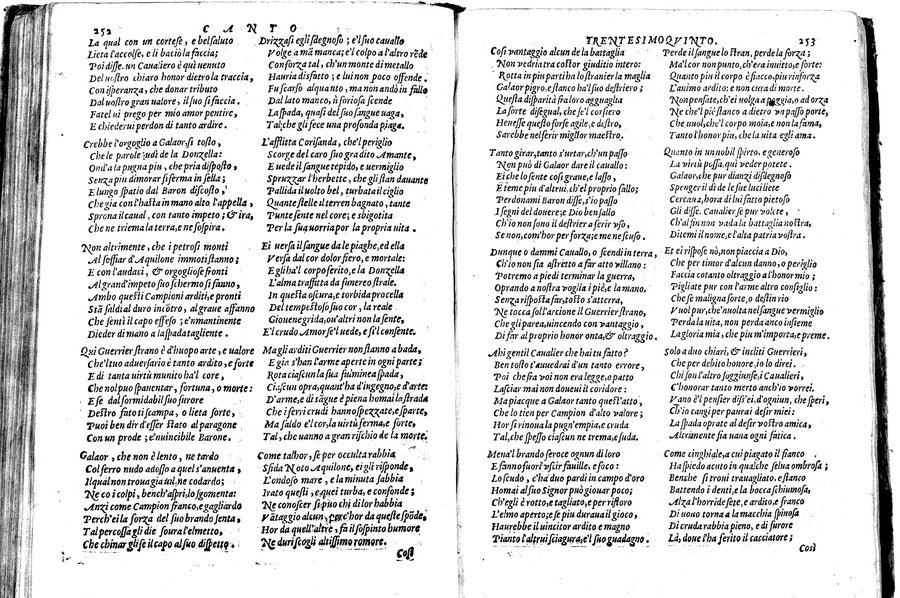 252 CANTO
La qual con un cortese, e bel saluto
Lieta l'accolse, e li baciò la faccia;
Poi disse. un Caualiero è quà uenuto
Del uostro chiaro honor dietro la traccia,
Con isperanza, che donar tributo
Dal uostro gran ualore, il suo si faccia.
Fatel ui prego per mio amor pentire,
E chiederui perdon di tanto ardire.
Crebbe l'orgoglio a Galaor sì tosto,
Che le parole udì de la Donzella:
Ond'a la pugna piu, che pria disposto,
Senza piu dimorar si ferma in sella;
E lungo spatio dal Baron discosto,
Che già con l'hasta in mano alto l'appella,
Sprona il caual, con tanto impeto; & ira,
Che ne triema la terra, e ne sospira.
Non altrimente, che i petrosi monti
Al soffiar d'Aquilone immoti stanno;
E con l'audaci, & orgogliose fronti
Al grand'impeto suo schermo si fanno,
Ambo questi Campioni arditi, e pronti
Stã saldi al duro incōtro, al graue affanno
Che sentì il capo effeso; e'nmantinente
Dieder di mano a la spada tagliente.
Qui Guerrier strano è d'huopo arte, e ualore
Che'l tuo aduersario è tanto ardito, e forte
E di tanta uirtù munito ha'l core,
Che nol puo spauentar, fortuna, o morte:
E se dal formidabil suo furore
Destro fato ti scampa, o lieta sorte,
Puoi ben dir d'esser stato al paragone
Con un prode; e'nuincibile Barone.
Galaor, che non è lento, ne tardo
Col ferro nudo adosso a quel s'auenta,
Il qual non troua già uil, ne codardo;
Ne co i colpi, bench'aspri, lo sgomenta:
Anzi come Campion franco, e gagliardo
Perch'ei la forza del suo brando senta,
Tal percossa gli die soura l'elmetto,
Che chinar gli fe il capo al suo dispetto.
Drizzasi egli sdegnoso; e'l suo cauallo
Volge a mã manca; e'l colpo a l'altro rēde
Con forza tal, ch'un monte di metallo
Hauria disfatto; e lui non poco offende.
Fu scarso alquanto, ma non andò in fallo
Dal lato manco, ù foriosa scende
La spada, quasi del suo sangue uaga,
Tal; che gli fece una profonda piaga.
L'afflitta Corisanda, che'l periglio
Scorge del caro suo gradito Amante,
E uede il sangue tepido, e uermiglio
Spruzzar l'herbette, che gli stan dauante
Pallida il uolto bel, turbata il ciglio
Quante stelle il terren bagnato, tante
Punte sente nel core; e sbigotita
Per la sua uorria por la propria uita.
Ei uersa il sangue da le piaghe, ed ella
Versa dal cor dolor fiero, e mortale:
Egli ha'l corpo ferito, e la Donzella
L'alma traffitta da funereo strale.
In questa oscura, e torbida procella
Del tempestoso suo cor, la reale
Giouene grida, on'altri non la sente,
E'l crudo Amor se'l uede, e si'l consente.
Ma gli arditi Guerrier non stanno a bada,
E già s'han l'arme aperte in ogni parte;
Rota ciascun la sua fulminea spada,
Ciascun opra, quant'ha d'ingegno, e d'arte:
D'arme, e di sãgue è piena homai la strada
Che i ferri crudi hanno spezzate, e sparte,
Ma saldo e'l cor, la uirtù ferma, e forte,
Tal, che uanno a gran rischio de la morte.
Come talhor, se per occulta rabbia
Sfida Noto Aquilone, ei gli risponde,
L'ondoso mare, e la minuta sabbia
Irato questi, e quei turba, e confonde;
Ne conoscer si puo chi di lor habbia
Vãtaggio alcun, perc'hor da queste spōde,
Hor da quell'altre, fà il sospinto humore
Ne duri scogli altissimo romore.
Cosi
TRENTESIMOQVINTO. 253
Cosi vantaggio alcun de la battaglia
Non vedria tra costor giuditio intero:
Rotta in piu parti ha lo stranier la maglia
Galaor pigro, e stanco ha'l suo destriero;
Questa disparità fra loro agguaglia
La sorte disegual, che se'l corsiero
Hauesse questo forse agile, e destro,
Sarebbe nel ferir miglior maestro.
Tanto girar, tanto s'urtar, ch'un passo
Non può il cauallo di Galaor dare:
Ei che lo sente così graue, e lasso,
E teme piu d'altrui, ch'el proprio fallo;
Perdonami Baron disse, s'io passo
I segni del douere; e Dio ben sallo
Ch'io non sono il destrier a ferir uso,
Se non, com'hor per forza; e me ne scuso.
Dunque o dammi Cauallo, o scendi in terra,
Ch'io non sia astretto a far atto villano:
Potremo a piedi terminar la guerra,
Oprando a nostra voglia i piè, e la mano.
Senza risposta far, tosto s'atterra,
Ne tocca sol l'arcione il Guerrier strano,
Che gli parea, uincendo con vantaggio,
Di far al proprio honor onta, & oltraggio.
Ahi gentil Caualier che hai tu fatto?
Ben tosto t'auuedrai d'un tanto errore,
Poi che fra voi non era legge, o patto
Lasciar mai non doueui il corridore:
Ma piacque a Galaor tanto quest'atto,
Che lo tien per Campion d'alto valore;
Hor si rinoua la pugn'empia, e cruda
Tal, che spesso ciascun ne trema, e suda.
Mena'l brando feroce ognun di loro
E fanno fuor'uscir fauille, e foco:
Lo scudo, c'ha duo pardi in campo d'oro
Homai al suo Signor può giouar poco;
Ch'egli è rotto, e tagliato, e per ristoro
L'elmo aperto, se piu duraua il gioco,
Haurebbe il uincitor ardito e magno
Pianto l'altrui sciagura, e'l suo guadagno.
Perde il sangue lo stran, perde la forza;
Ma'l cor non punto, ch'era inuitto, e forte:
Quanto piu il corpo è fiacco, piu rinforza
L'animo ardito: e non cura di morte.
Non pensate, ch'ei uolga a poggia, o ad orza
Ne che'l piè stanco a dietro un passo porte,
Che uuol, che'l corpo moia, e non la fama,
Tanto l'honor piu, che la uita egli ama.
Quanto in un nobil spirto, e generoso
La virtù possa, quì veder potete.
Galaor, che pur dianzi disdegnoso
Spenger il dì de le sue luci liete
Cercaua, hora di lui fatto pietoso
Gli disse. Caualier se pur volete,
Ch'al fin non vada la battaglia nostra,
Ditemi il nome, e l'alta patria vostra.
Et ei rispose nò, non piaccia a Dio,
Che per timor d'alcun danno, o periglio
Faccia cotanto oltraggio al honor mio;
Pigliate pur con l'arme altro consiglio:
Che se maligna sorte, o destin rio
Vuol pur, che'nuolta nel sangue vermiglio
Perda la uita, non perda anco insieme
La gloria mia, che piu m'importa, e preme.
Solo a duo chiari, & incliti Guerrieri,
Che per debito honore, io lo direi.
Chi son l'altro soggiunse, i Caualieri,
C'honorar tanto merto anch'io vorrei.
Vano è'l pensier diss'ei, d'ognun, che speri,
Ch'io cangi per paura i desir miei:
La spada oprate al desir vostro amica,
Altrimente fia uana ogni fatica.
Come cinghiale, a cui piagato il fianco
Ha spiedo acuto in qualche selua ombrosa;
Benche si troui trauagliato, e stanco
Battendo i denti, e la bocca schiumosa,
Alza l'horride sete, e ardito, e franco
Di nouo torna a la macchia spinosa
Di cruda rabbia pieno, e di furore
Là, doue l'ha ferito il cacciatore;
Così